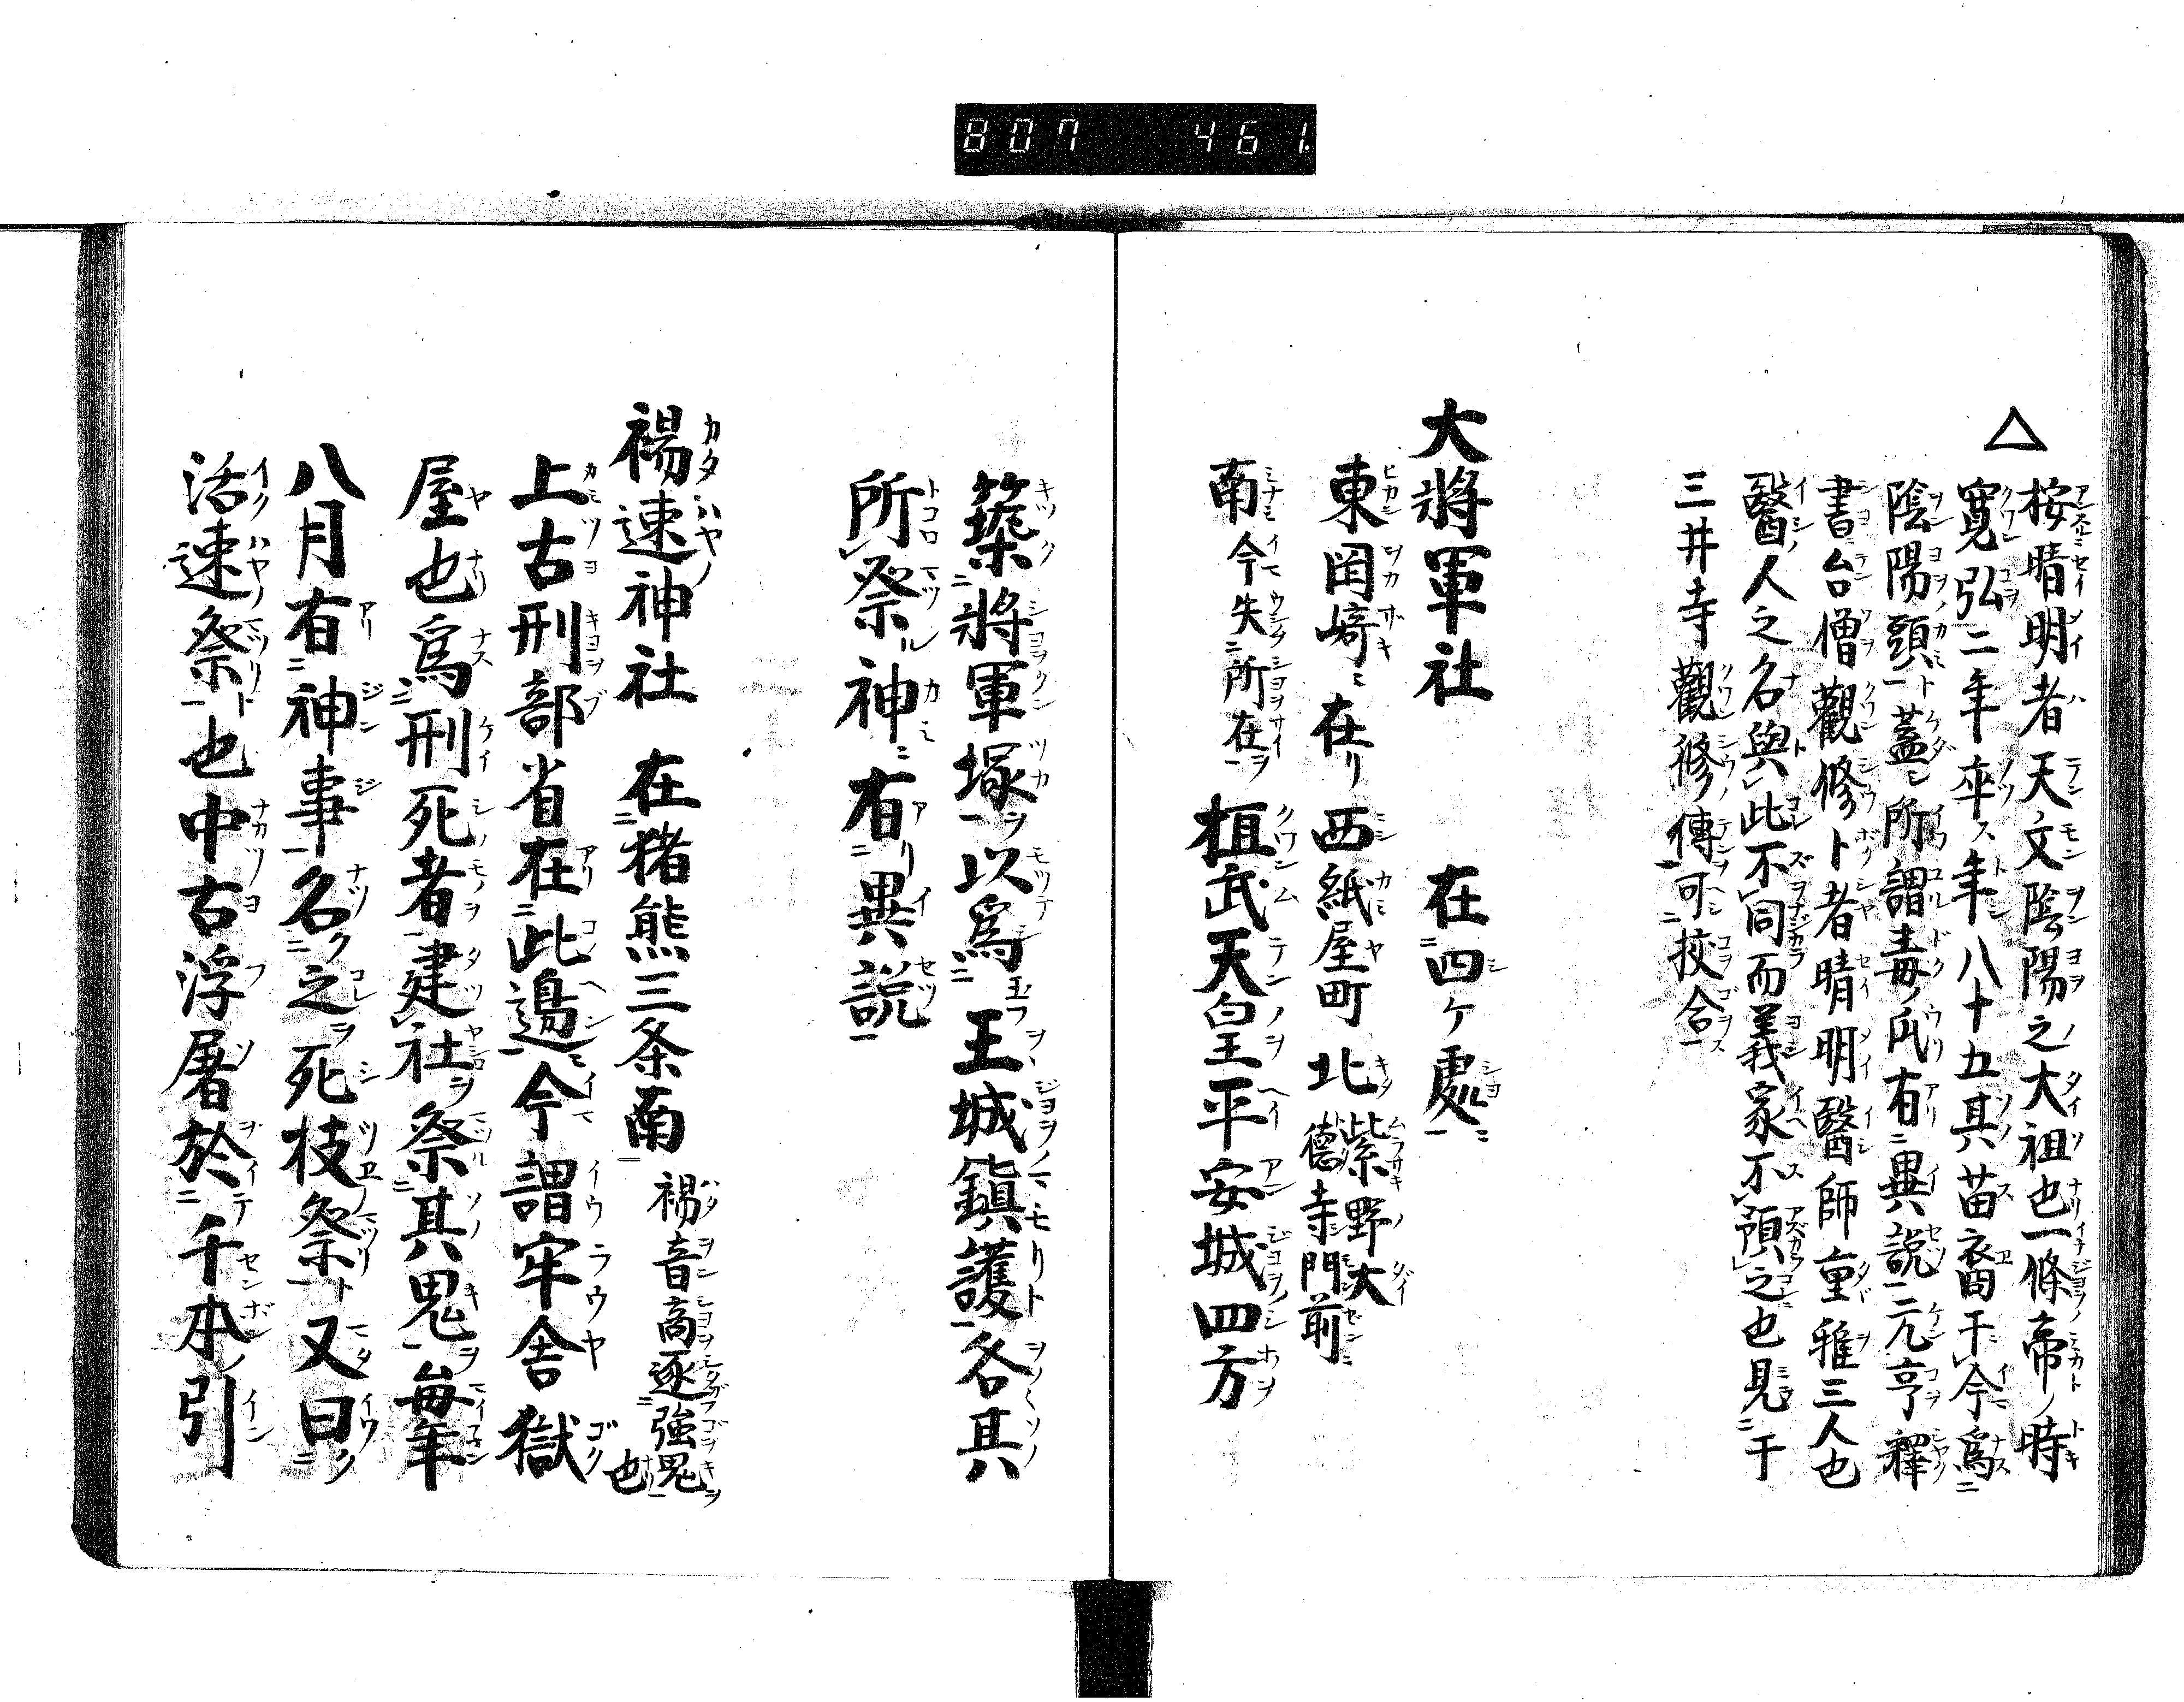 807 461.
△
桉晴明者天文陰陽之大祖也一條帝ノ時
寛弘二年卒ス年八十五其苗裔于今爲
陰陽頭蓋シ所謂毒ノ瓜有異説元亨釋
書台僧觀修卜者晴明醫師重雅三人也
醫人之名與此不同而義家不預之也見于
三井寺觀修傳可挍合
大將軍社 在四ケ處
東岡﨑ニ在リ西紙屋町 北紫野大德寺門前
南今失所在 桓武天皇平安城四方
築將軍塚以爲王城鎮護各其
所祭神有異説
禓速神社 在猪熊三条南 禓音高逐強鬼也
上古刑部省在此邉今謂牢舎獄
屋也爲刑死者建社祭其鬼毎年
八月有神事名之死枝祭又曰
活速祭也中古浮屠於千本引